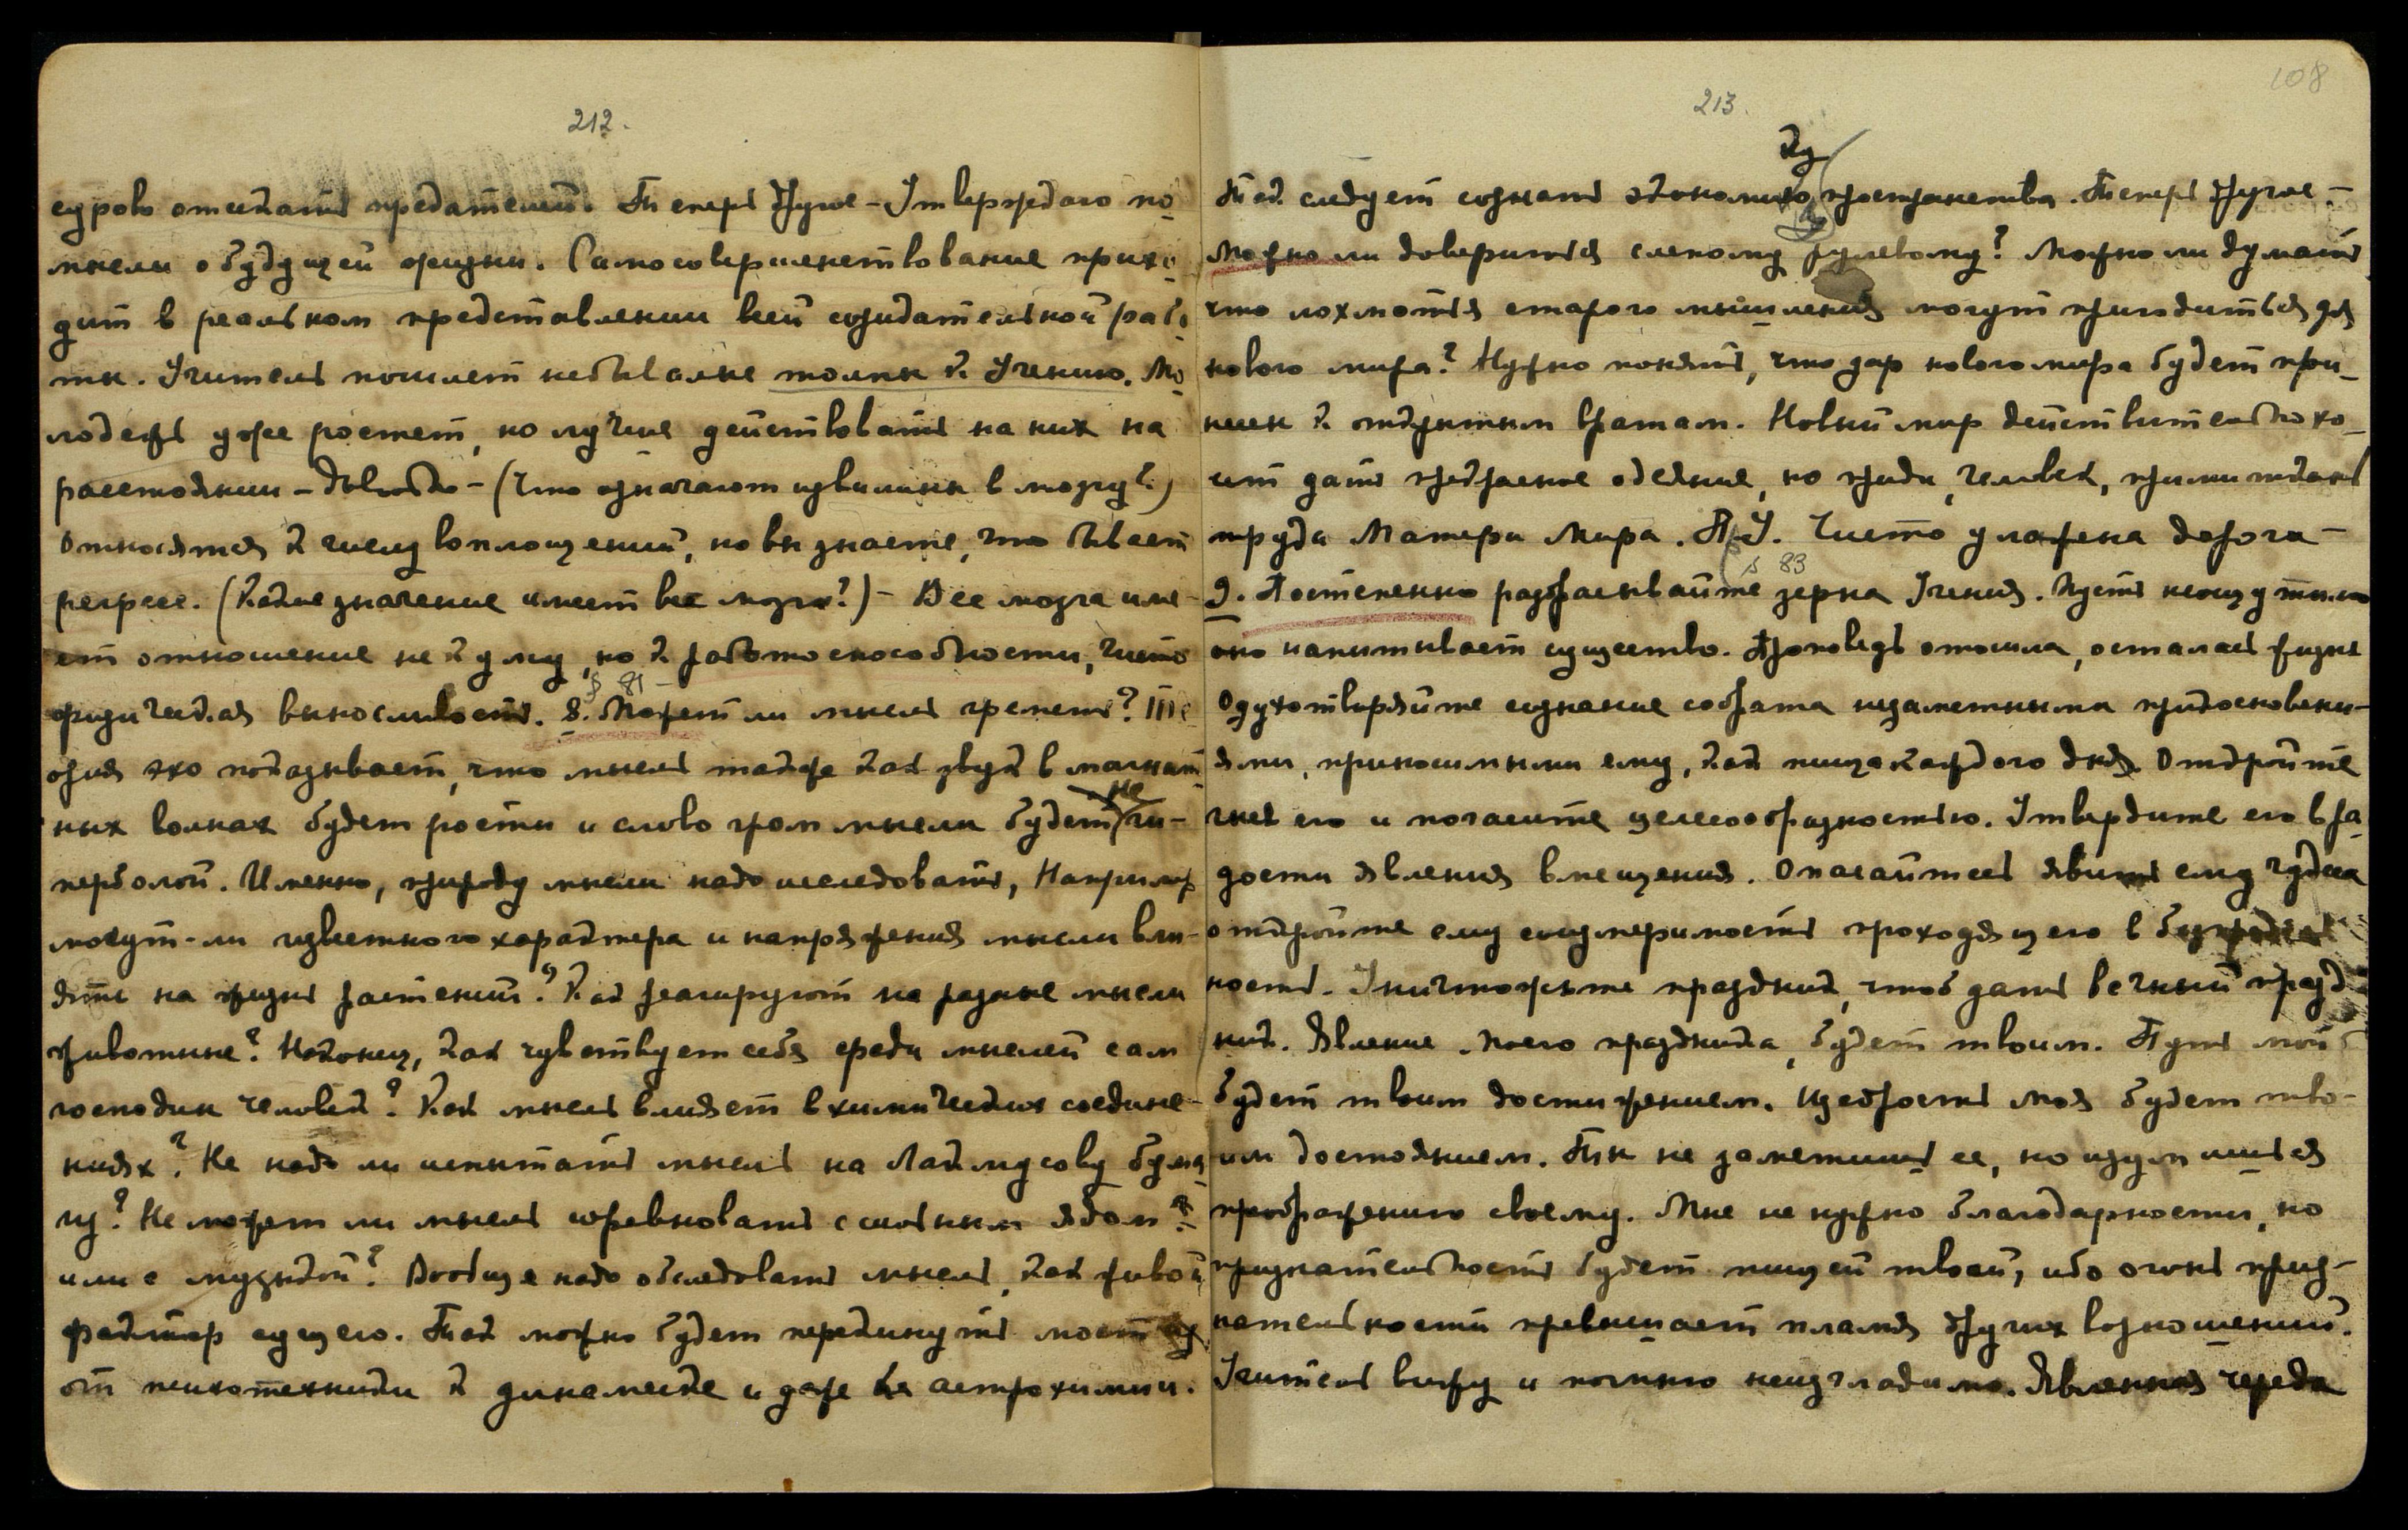 212.
сурово отсекать предателей. Теперь другое – Утверждаю по-
мысли о будущей жизни. Самосовершенствование прихо-
дит в реальном представлении всей созидательной рабо
ты. Учитель пошлет небывалые толпы к Учению. Мо-
лодежь уже растет, но лучше действовать на них на
расстоянии – довольно – (Что означают извилины в мозгу?)
Относятся к числу воплощений, но вы знаете, что бывает
регресс. (Какое значение имеет вес мозга?) – Вес мозга име-
ет отношение не к уму, но к работоспособности, чисто
физическая выносливость. 8. Может ли мысль греметь?
§ 81 –
эхо показывает, что мысль также как звук в магнит
ных волнах будет расти и слово гром мысли будет не ги-
перболой. Именно, природу мысли надо исследовать, Например
могут-ли известного характера и напряжения мысли вли-
ять на жизнь растений? Как реагируют на разные мысли
животные? Наконец, как чувствует себя среди мыслей сам
господин человек? Как мысль влияет в химических соедине-
ниях? Не надо ли испытать мысль на Лакмусову бума
гу? Не может ли мысль соревновать с сильным ядом?
или с музыкой? Вообще надо обследовать мысль, как живой
фактор сущего. Так можно будет перекинуть мост
от психотехники к динамике и даже к астрохимии.
213.
108
Так следует сознать экономику пространства. Теперь другое –
Можно ли довериться слепому рулевому? Можно ли думать
что лохмотья старого мышления могут пригодиться для
нового мира? Нужно понять, что дар нового мира будет при-
несен к открытым вратам. Новый мир действительно хо-
чет дать прекрасное одеяние, но приди, человек, прими ткань
труда Матери Мира. Чисто улажена дорога –
§ 83
9. Постепенно разбрасывайте зерна Учения. Пусть неощутимо
оно напитывает существо. Проповедь отошла, осталась жизнь
Одухотворяйте сознание собрата незаметными прикосновени-
ями, приносимыми ему, как пища каждого дня. Откройте
гнев его и погасите целесообразностью. Утвердите его в ра-
дости явления вмещения. Опасайтесь явить ему чудеса
откройте ему соизмеримость проходящего в
ность. Уничтожьте праздник, чтоб дать вечный празд
ник. Явление моего праздника, будет твоим. Путь мой
будет твоим достижением. Щедрость моя будет тво-
им достоянием. Ты не заметишь ее, но изумишься
преображению своему. Мне не нужно благодарности, но
признательность будет пищей твоей, ибо огонь приз-
нательности превышает пламя других возношений.
Учитель вижу и помню неизгладимо. Явленная череда